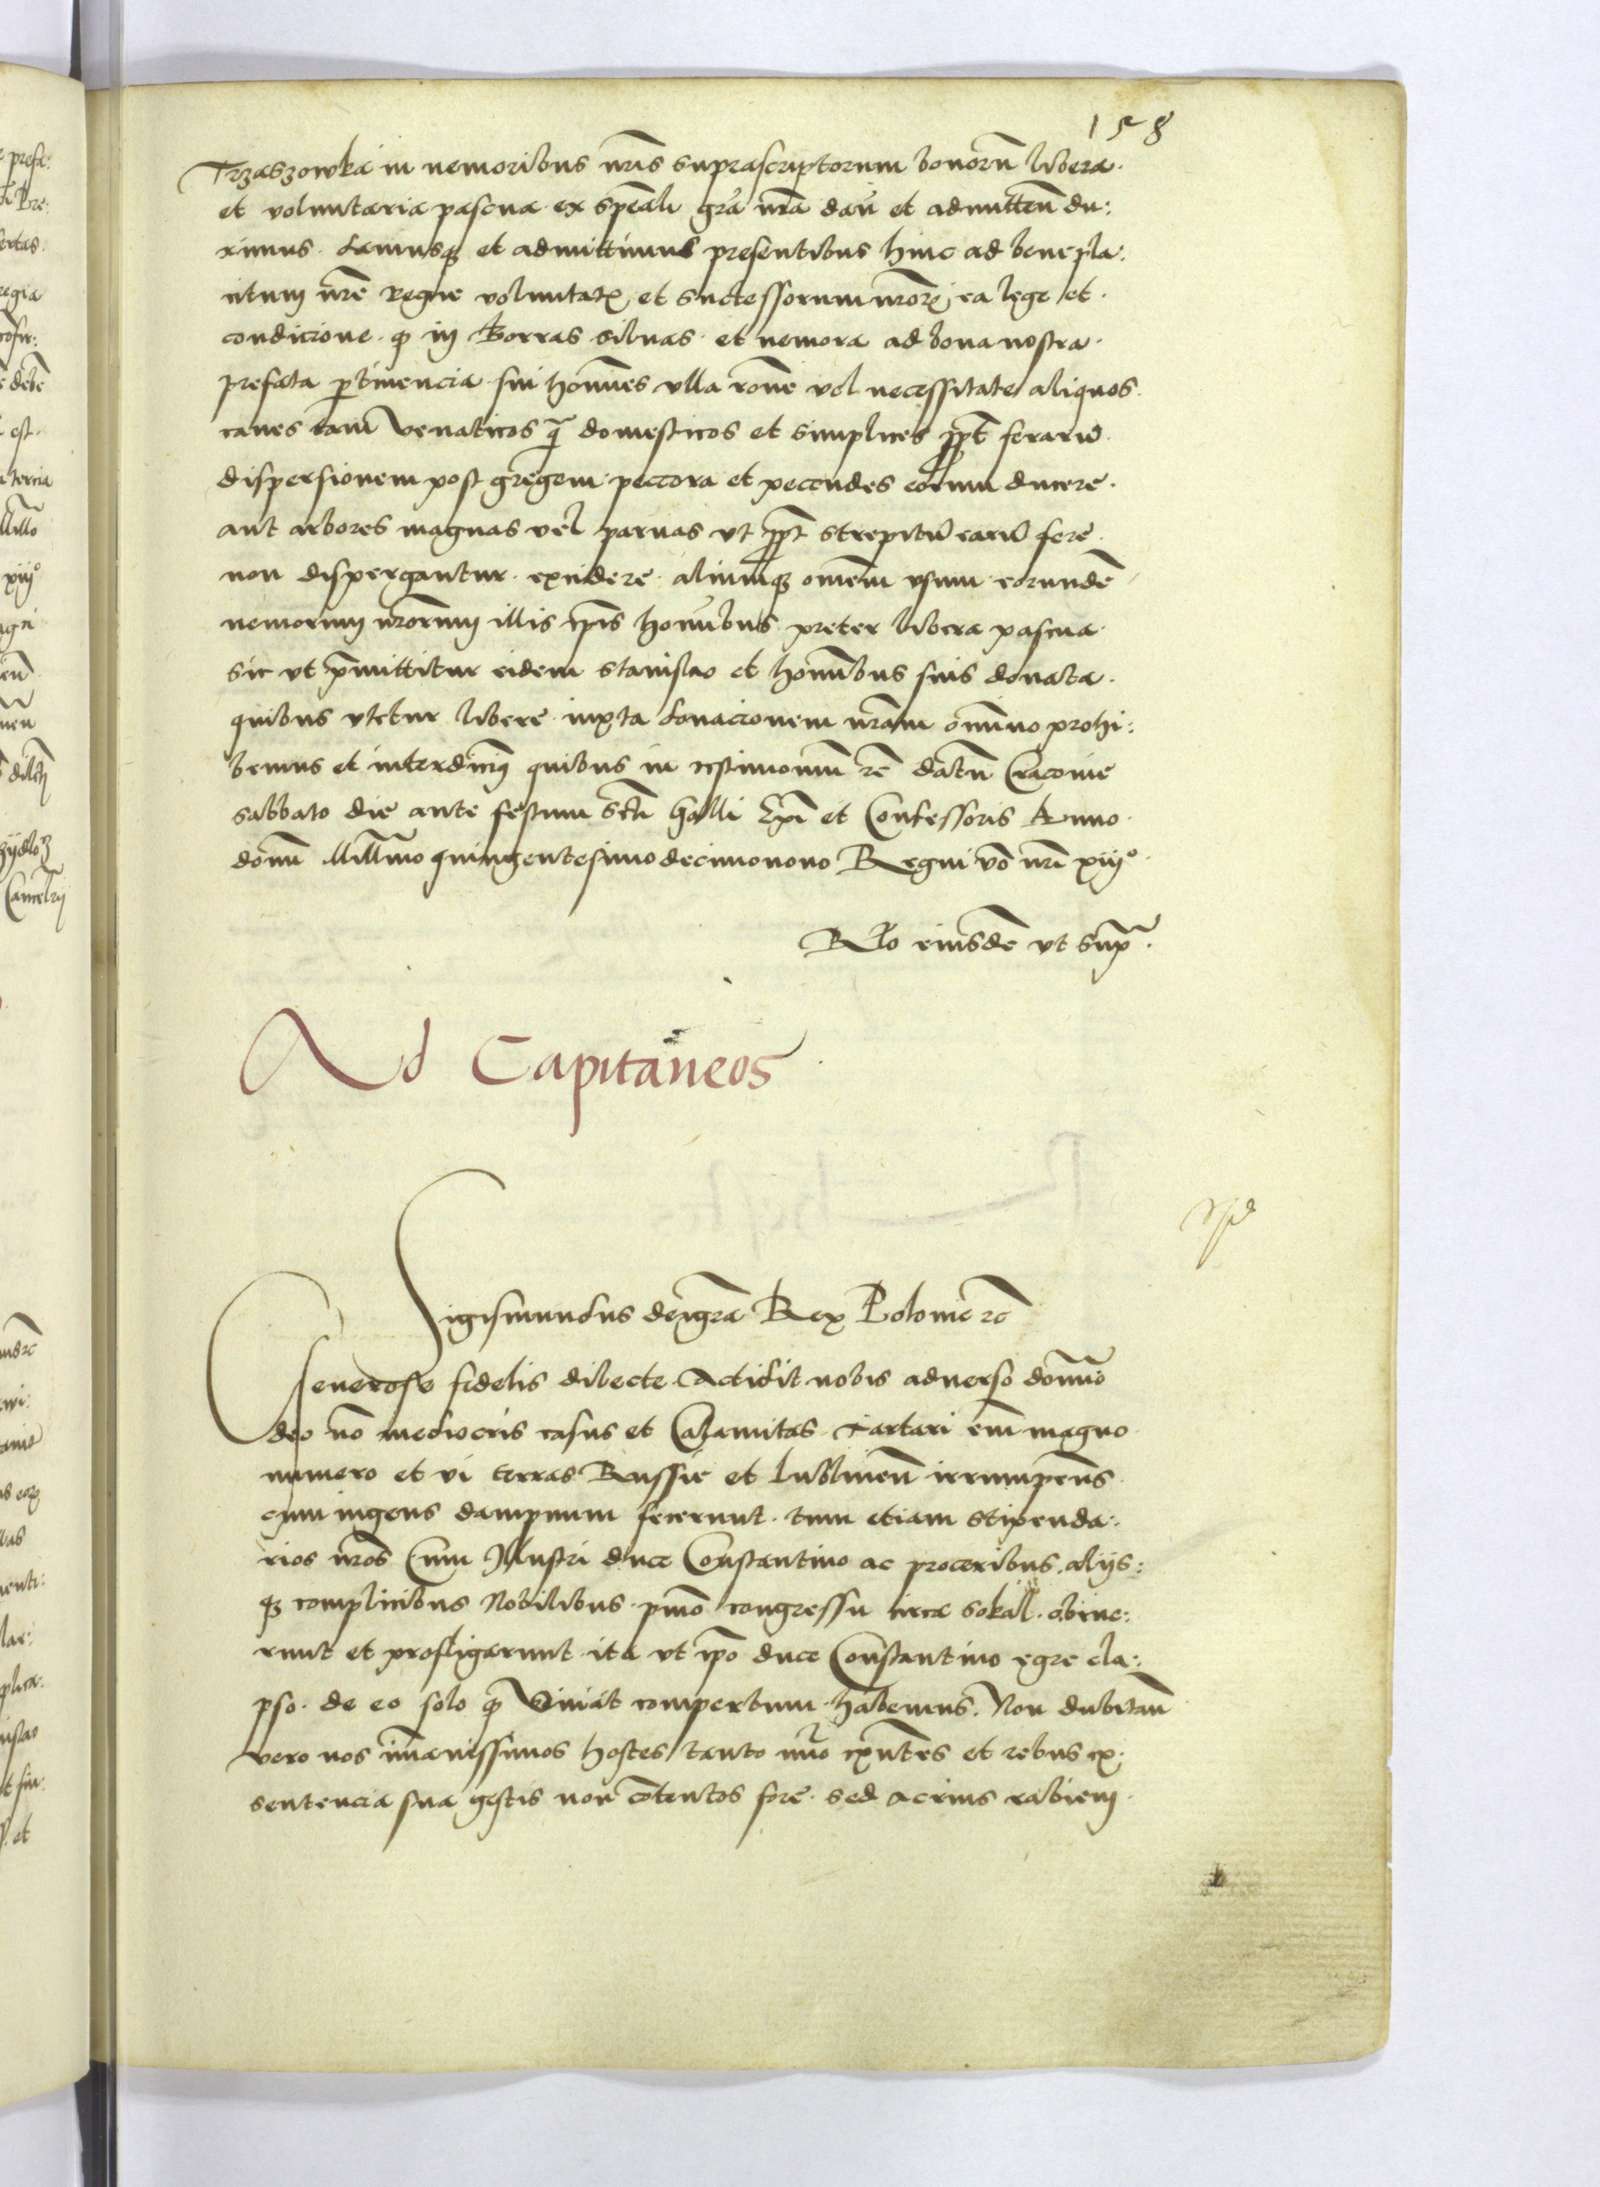 158
Trzaszowka in nemoribus nr̃is suprascriptorum bonorũ libera·
et voluntaria pascua ex sp̃eali grã nrã dañ et admitteñ du:
ximus· damusq3 et admittimus presentibus hinc ad benepla:
citum nrẽ Regie voluntatis et successorum nrorũ ea lege et·
condicione· q in Borras siluas· et nemora ad bona nostra·
prefata ptinencia sui homines vlla rõne vel necessitate aliquos·
canes tam venaticos q̃ domesticos et simplices ppt ferarũ·
dispersionem post gregem peccora et pecudes eorum ducere·
aut arbores magnas vel paruas vt ppt strepitũ earũ fere·
non dispergantur· excidere· aliumq3 omẽm vsum eorundẽ
nemorum nrorum illis ip̃is hoĩnibus preter libera pascua·
sic vt p̃mittitur eidem Stanislao et hominibus suis donata·
quibus vtetur libere iuxta donacionem nrãm omĩno prohi:
bemus et interdicim9 quibus in testimoniũ rẽ datũ Cracouie
sabbato die ante festum scti Galli xp̃i et Confessoris Anno·
domĩ Millmo quingentesimo decimonono Regni vo nri xiijº·
Rlo eiusdẽ vt sup̃·
Ad Capitaneos
Sigismundus dei grã Rex Polonie rc̃
Generose fidelis dilecte Accidit nobis aduerso domĩo
deo nõ mediocris casus et Calamitas Tartari em̃ magno·
numero et vi terras Russie et Lublineñ irrumpeñs·
cum ingens dampnum fecerunt· tum etiam stipenda:
rios nrõs Cum Illustri duce Constantino ac proceribus alijs:
q3 complicibus Nobilibus pmo congressu circa Sokal· obrue:
runt et profligarunt ita vt ip̃o duce Constantino egre ela:
pso· de eo solo q̃ viuat compertum habemus· Non dubitañ
vero nos imãnissimos hostes tanto nũo ex̃ntes et rebus ex·
sentencia sua gestis non cõtentos fore· sed acrius rabiem·